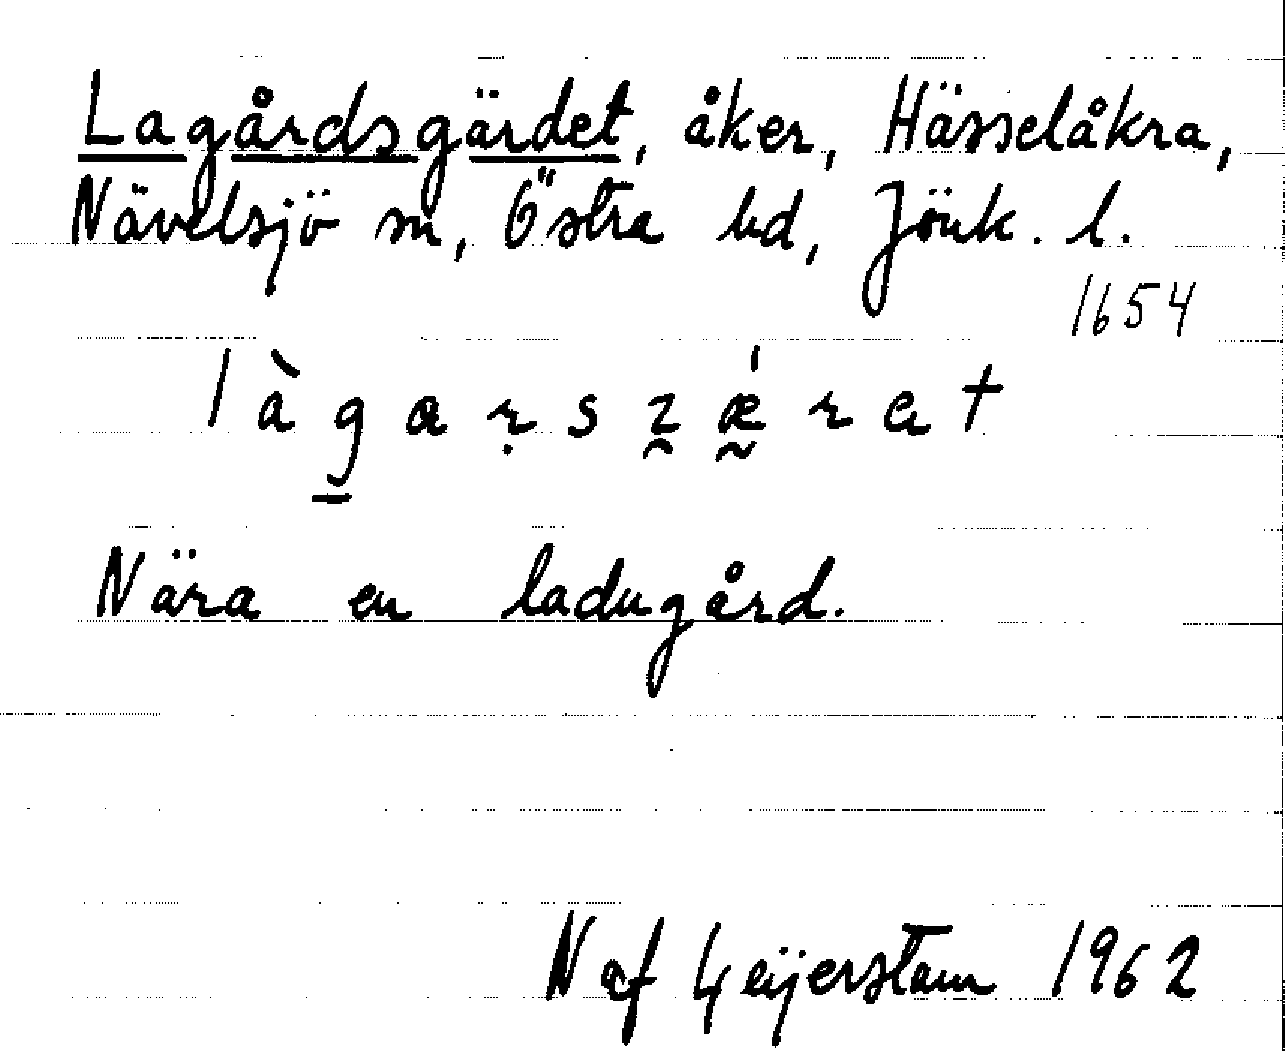 Lagårdsgärdet, åker, Hässelåkra,
Nävelsjö sn, Östra hd, Jönk. l.
1654
Nära en ladugård.
N af Geijerstam 1962